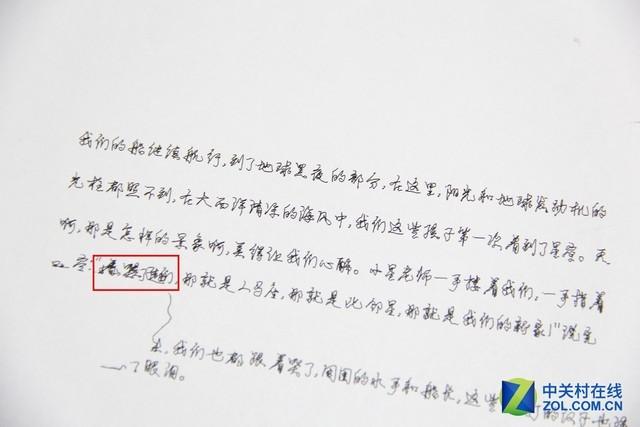 我们的船继续航行,到了地球黑夜的部分,在这里,阳光和地球发动机的
光柱都照不到,在大西洋清凉的海风中,我们这些孩子第一次看到了星空。天
啊,那是怎样的景象啊,美得让我们心醉。小星老师一手搂着我们,一手指着
空:"看,孩子们,那就是人马座,那就是比邻星,那就是我们的新家!"说完
来,我们也都跟着哭了,周围的水手和船长,这些
了眼泪。
中关村在线
ZOL.COM.CN